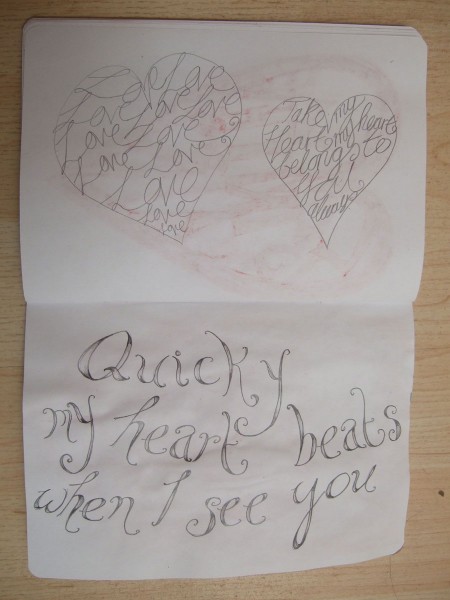 Love Love
Love Love Love
Love Love
Love Love
Love
Love
Love
Take my
Heart my heart
belongs to
always
Quicky
my heart beats
when I see you